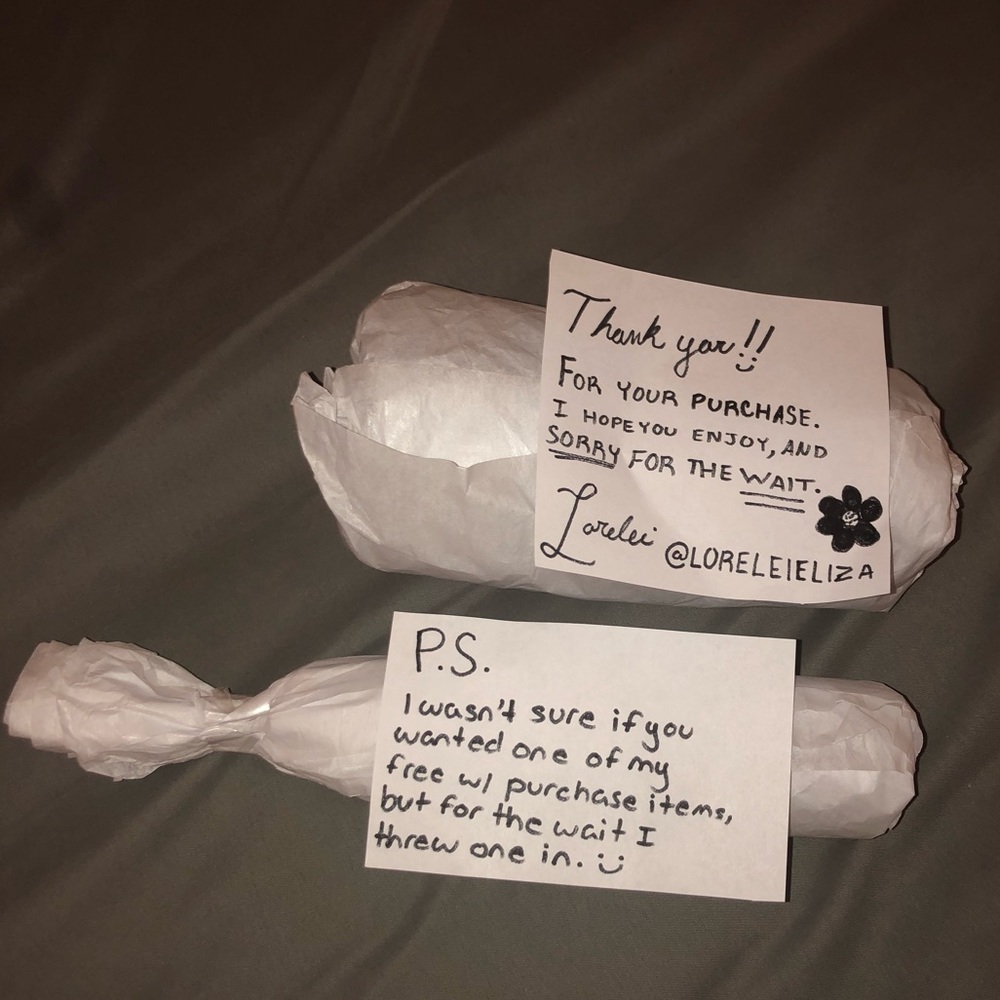 Thank you!!
FOR YOUR PURCHASE.
I HOPE YOU ENJOY, AND
SORRY FOR THE WAIT.
Lorelei @LORELEIELIZA
P.S.
I wasn't sure if you
wanted one of my
free w/ purchase items,
but for the wait I
threw one in. :)